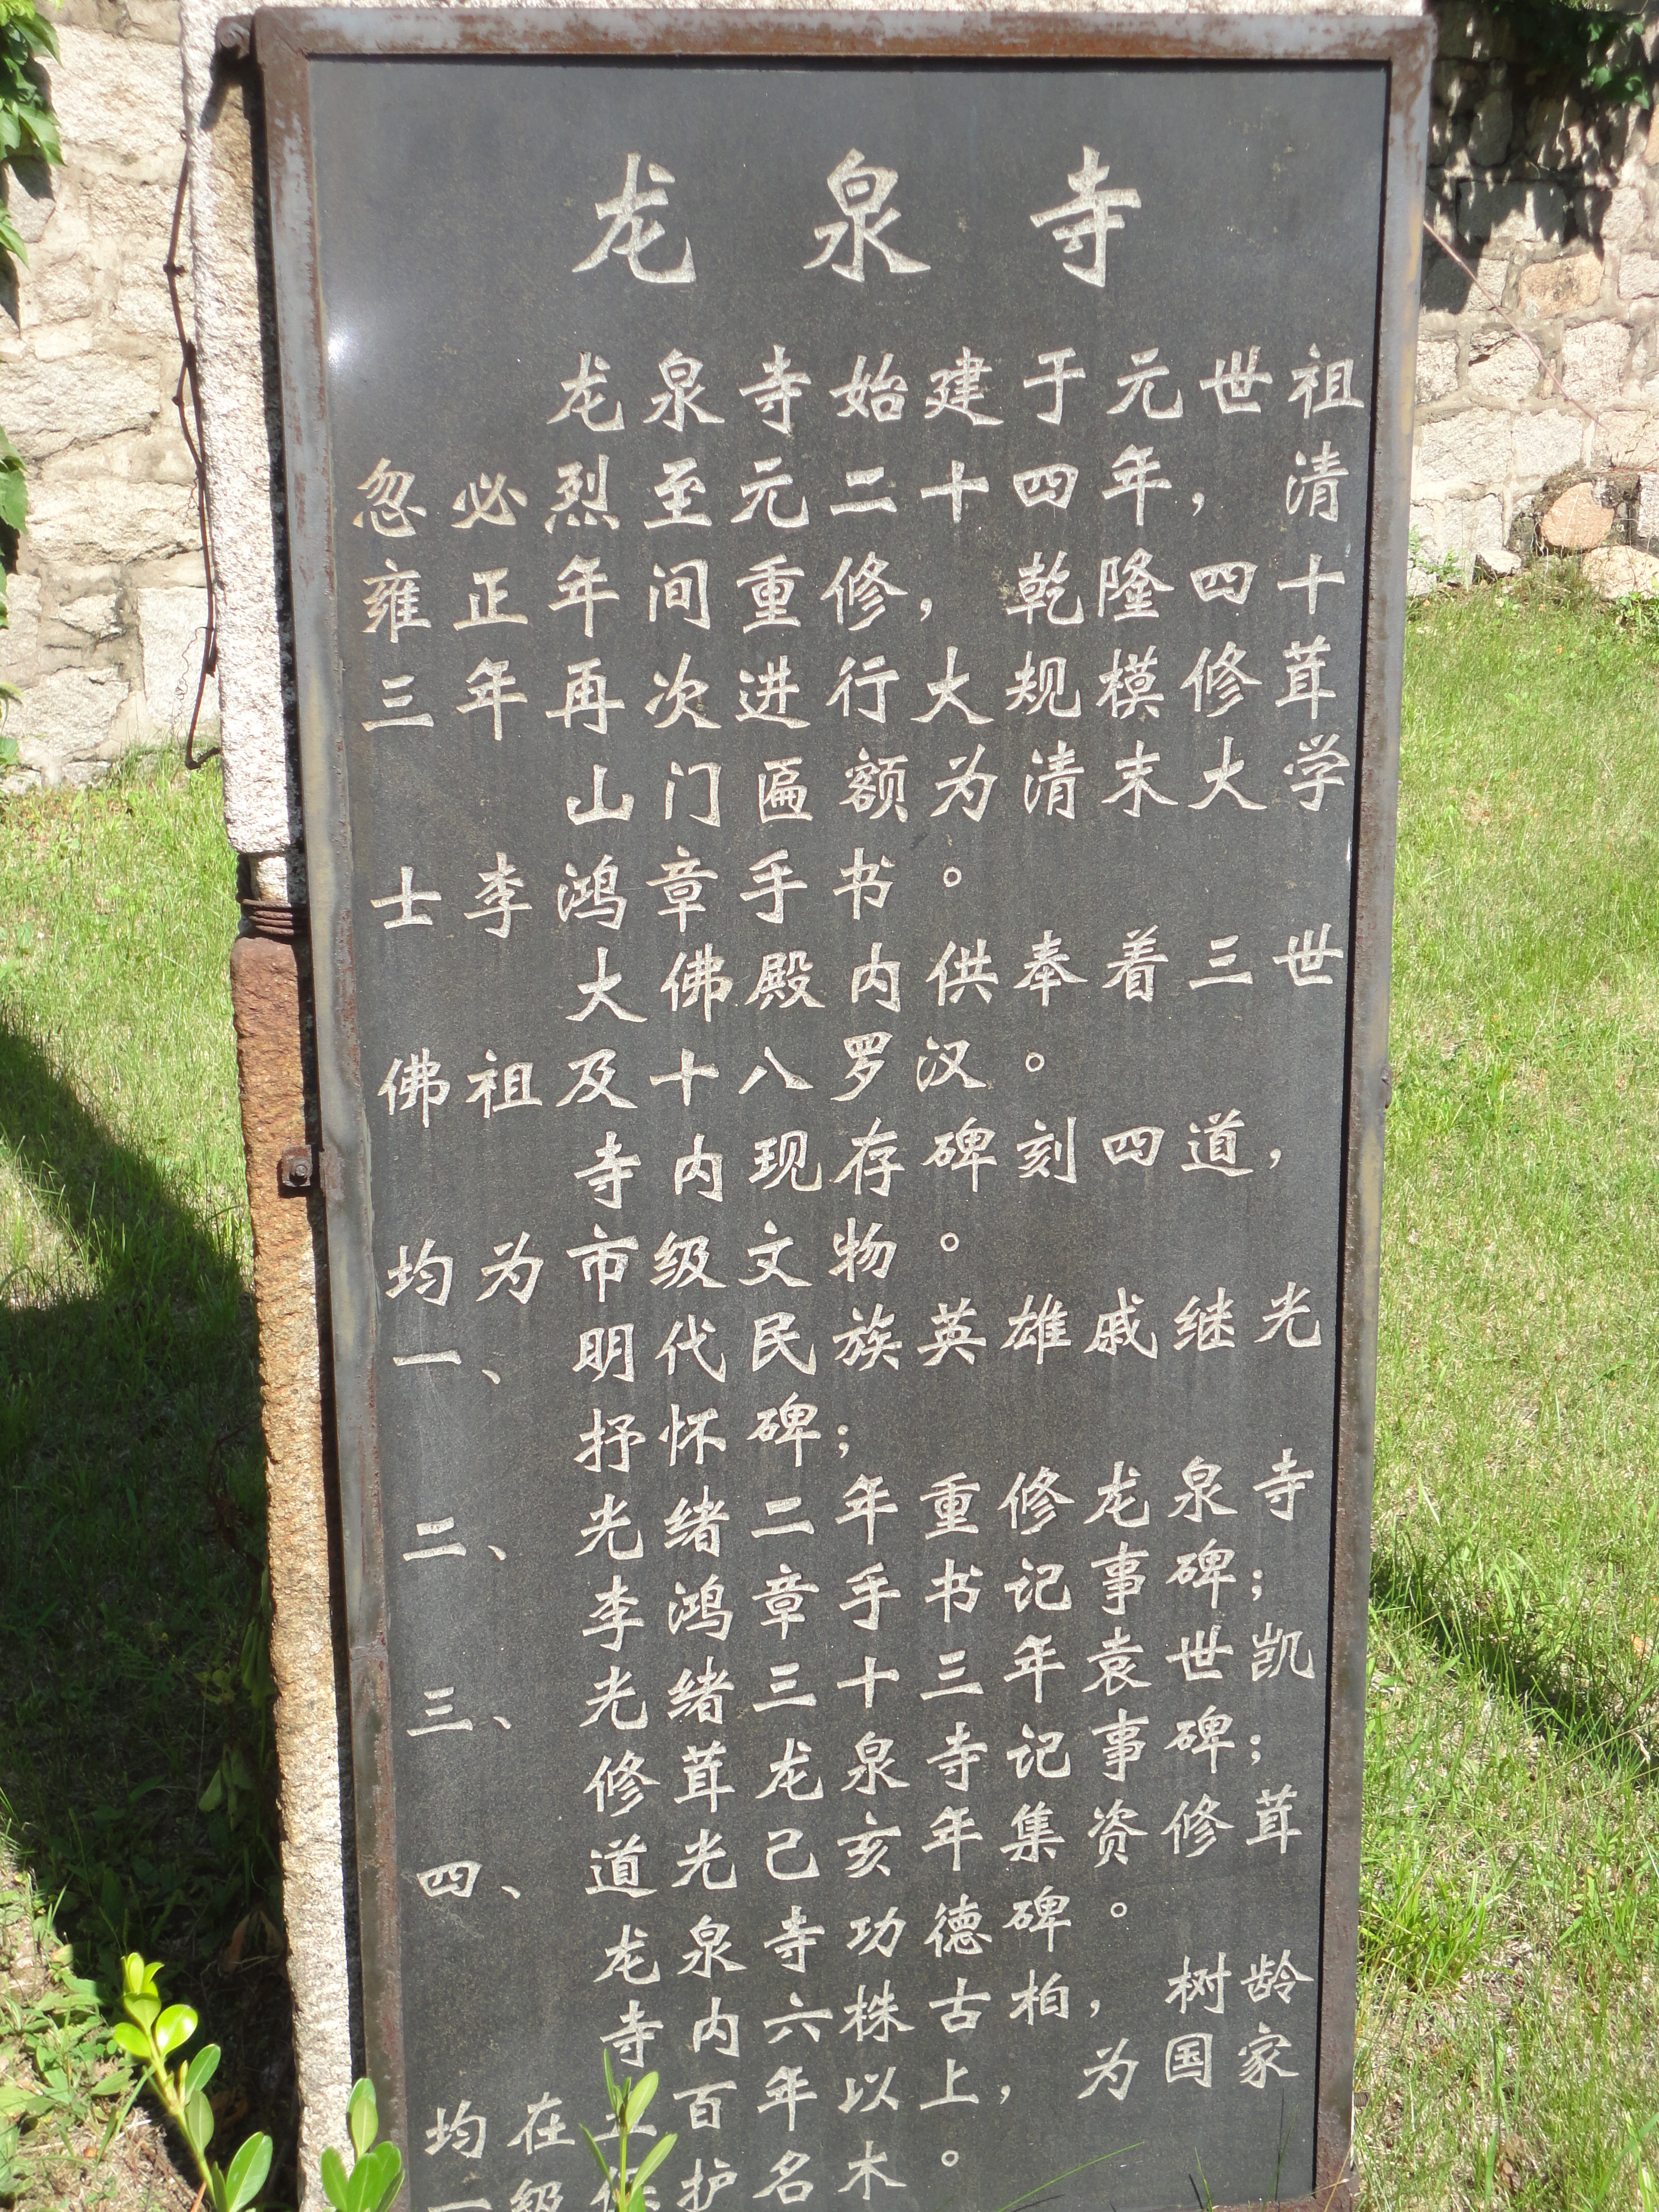 龙泉寺
龙泉寺始建于元世祖
忽必烈至元二十四年，清
雍正年间重修，乾隆四十
三年再次进行大规模修茸
山门匾额为清末大学
士李鸿章手书。
大佛殿内供奉着三世
佛祖及十八罗汉。
寺内现存碑刻四道，
均为市级文物。
一、明代民族英雄戚继光
抒怀碑；
二、光绪二年重修龙泉寺
李鸿章手书记事碑；
三、光绪三十三年袁世凯
修茸龙泉寺记事碑；
四、道光己亥年集资修茸
龙泉寺功德碑。
寺内六株古柏，树龄
均在五百年以上，为国家
一级保护名木。